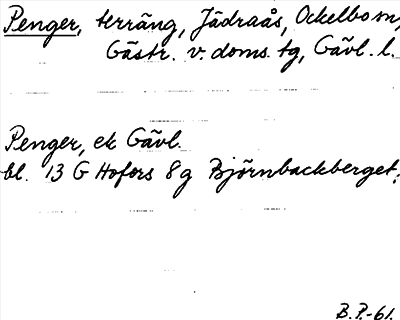 Penger, terräng, Jädraås, Ockelbo sn,
Gästr. v. doms. tg, Gävl. l.
Penger, ek Gävl.
bl. 13 G Hofors 8 g Björnbackberget.
B.P.-61.